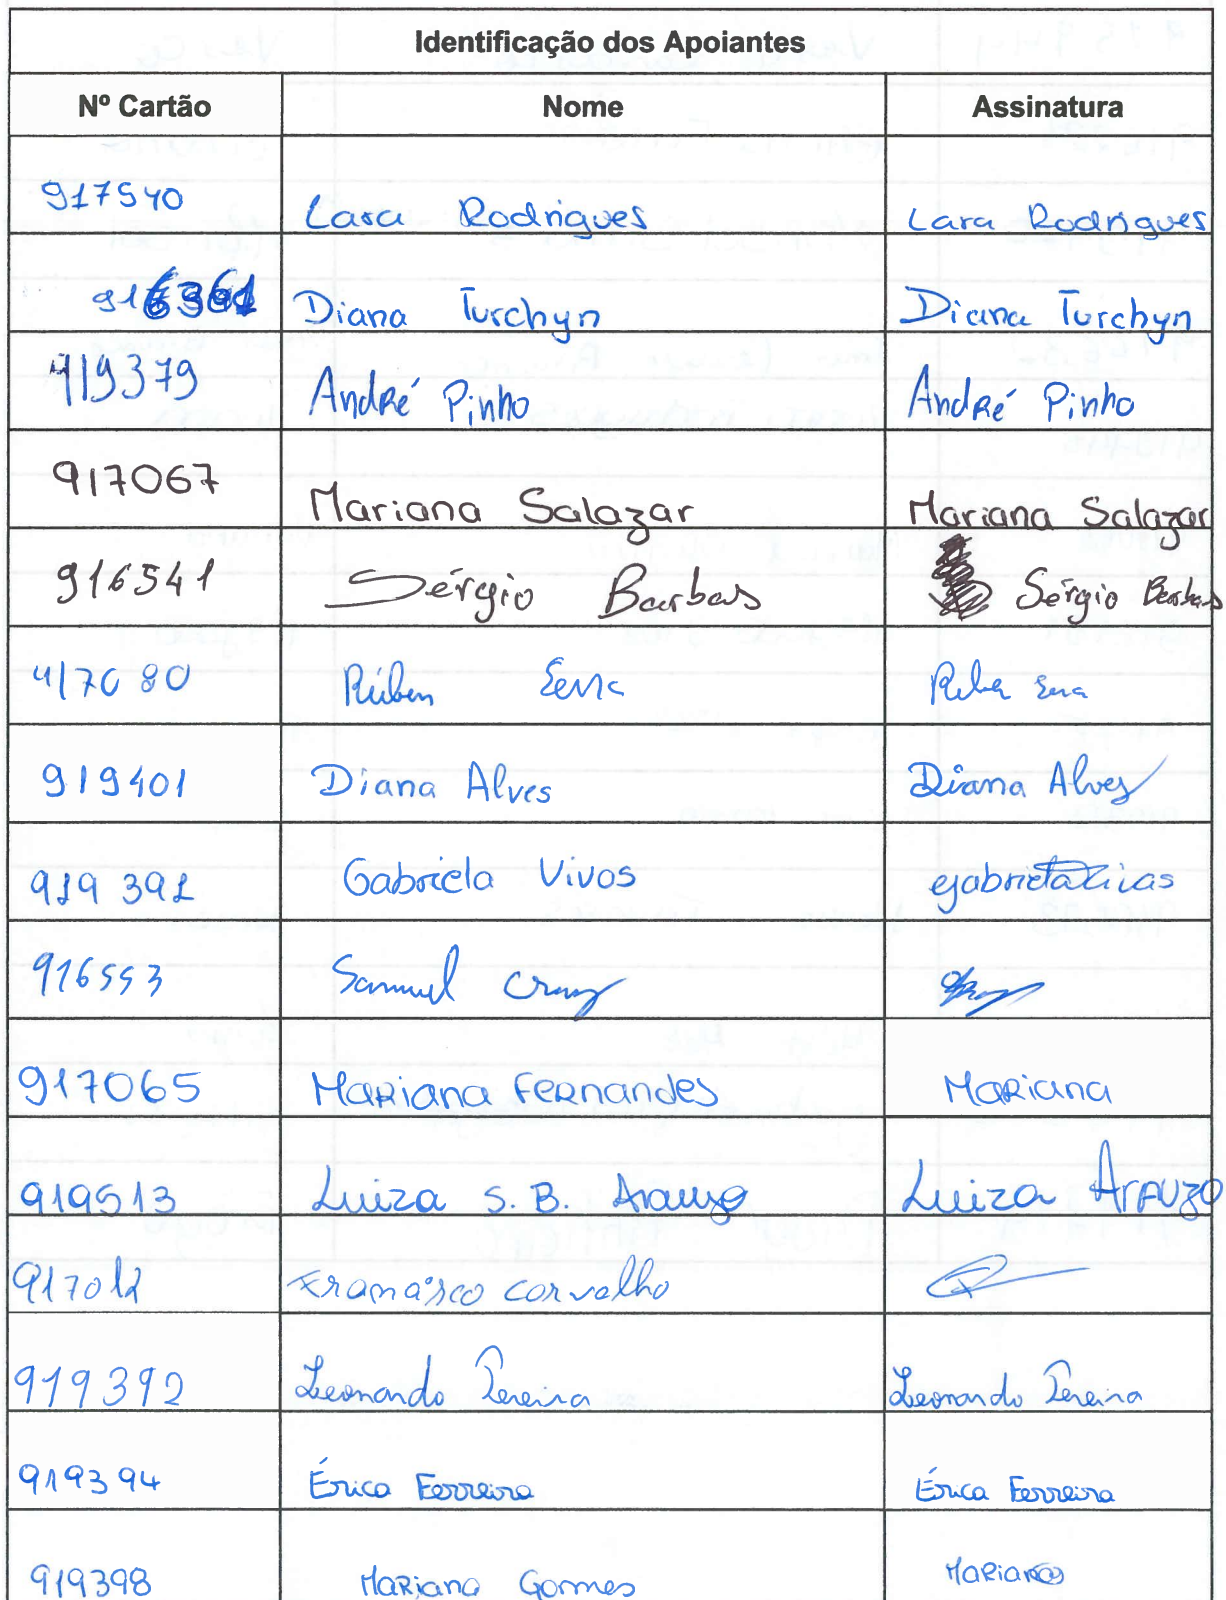 Identificação dos Apoiantes
Nº Cartão Nome Assinatura
917540 Lara Rodrigues Lara Rodrigues
916361 Diana Turchyn Diana Turchyn
919379 André Pinho André Pinho
917067 Mariana Salazar Mariana Salazar
916541 Sérgio Barbas Sérgio Barbas
917080 Rúben
919401 Diana Alves Diana Alves
919391 Gabriela Vivas gabriela Vivas
916553 Samuel Cruz
917065 Mariana Fernandes Mariana
919513 Luiza S. B. Araujo Luiza Araujo
917012 Francisco Carvalho
919392 Leonardo Pereira Leonardo Pereira
919394 Érica Ferreira Érica Ferreira
919398 Mariana Gomes Mariana